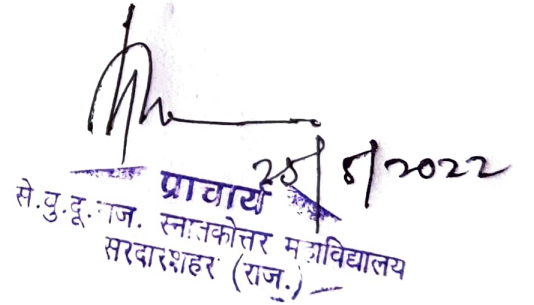 25/8/2022
प्राचार्य
से.वु.दू. राज. स्नातकोत्तर महाविद्यालय
सरदारशहर (राज.)